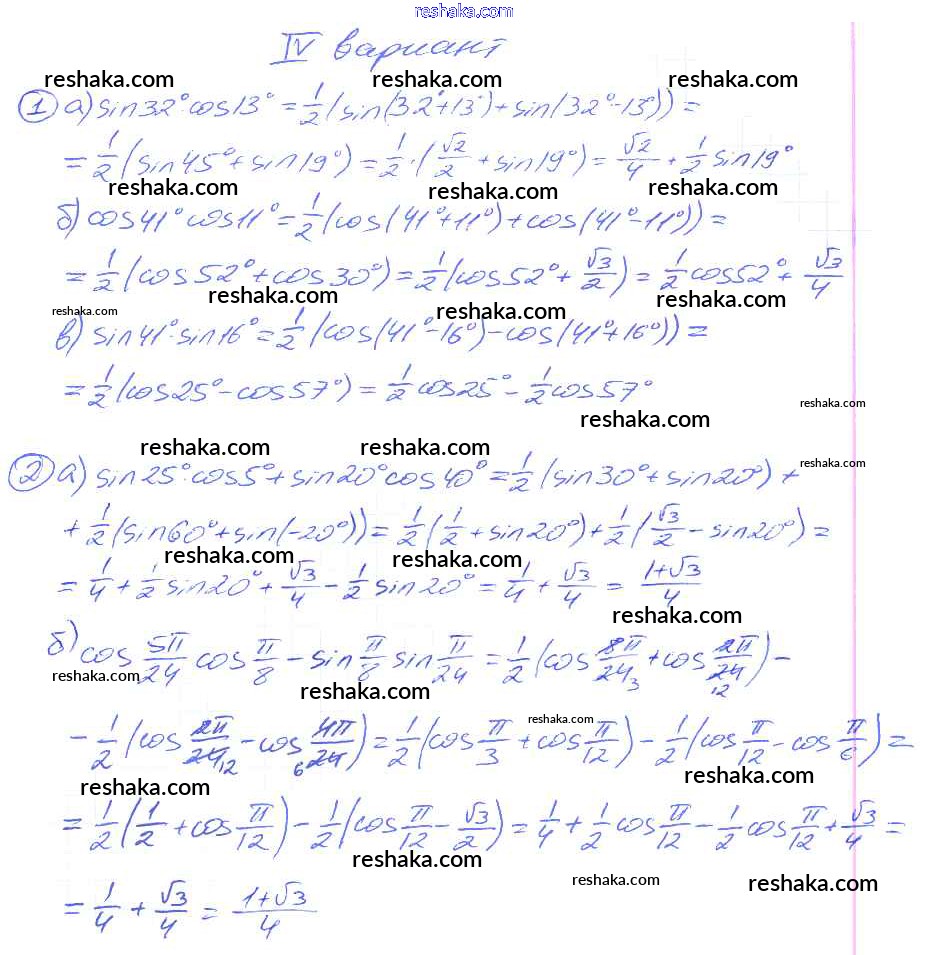 reshaka.com
IV вариант
reshaka.com reshaka.com reshaka.com
1 а) sin32°cos13° = 1/2(sin(32°+13°)+sin(32°-13°)) =
= 1/2(sin45°+sin19°) = 1/2·(√2/2+sin19°) = √2/4 + 1/2 sin19°
reshaka.com reshaka.com reshaka.com
б) cos41°cos11° = 1/2(cos(41°+11°)+cos(41°-11°)) =
= 1/2(cos52°+cos30°) = 1/2(cos52°+√3/2) = 1/2cos52°+√3/4
reshaka.com reshaka.com reshaka.com reshaka.com
в) sin41°·sin16° = 1/2(cos(41°-16°)-cos(41°+16°)) =
= 1/2(cos25°-cos57°) = 1/2cos25°-1/2cos57°
reshaka.com reshaka.com
reshaka.com reshaka.com reshaka.com
2 а) sin25°·cos5°+sin20°cos40° = 1/2(sin30°+sin20°)+
+1/2(sin60°+sin(-20°)) = 1/2(1/2+sin20°)+1/2(√3/2-sin20°) =
reshaka.com reshaka.com
= 1/4+1/2sin20°+√3/4-1/2sin20° = 1/4+√3/4 = (1+√3)/4
reshaka.com
б) cos 5π/24 cos π/8 - sin π/8 sin π/24 = 1/2(cos 8π/24 3 + cos 2π/24 12) -
reshaka.com reshaka.com
- 1/2(cos 2π/24 12 - cos 4π/24 6) = 1/2(cos π/3 + cos π/12) - 1/2(cos π/12 - cos π/6) =
reshaka.com
reshaka.com reshaka.com
= 1/2(1/2+cos π/12) - 1/2(cos π/12 - √3/2) = 1/4+1/2cos π/12 - 1/2cos π/12 + √3/4 =
reshaka.com
reshaka.com reshaka.com
= 1/4+√3/4 = (1+√3)/4